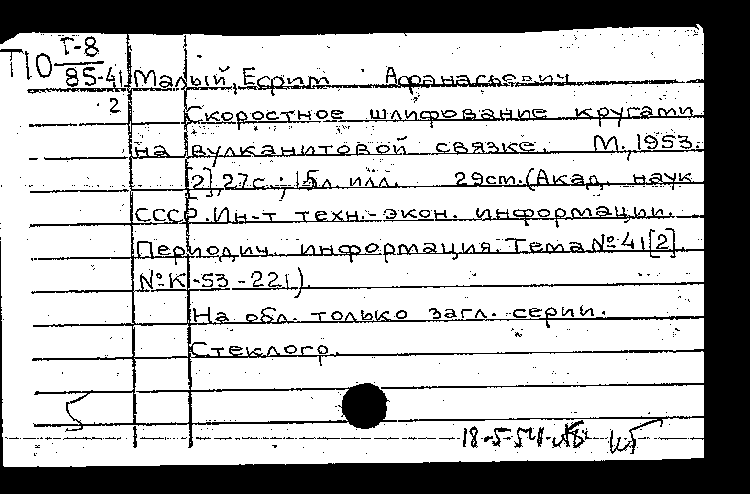 П10 Г-8
85-41 Малый, Ефрим Афанасьевич
2 Скоростное шлифование кругами
на вулканитовой связке. М., 1953.
[2], 27с.; 15л. илл. 29см. (Акад. наук
СССР. Ин-т техн.-экон. информации.
Периодич. информация. Тема № 41[2].
№ К-53-221).
На обл. только загл. серии.
Стеклогр.
18-5-54